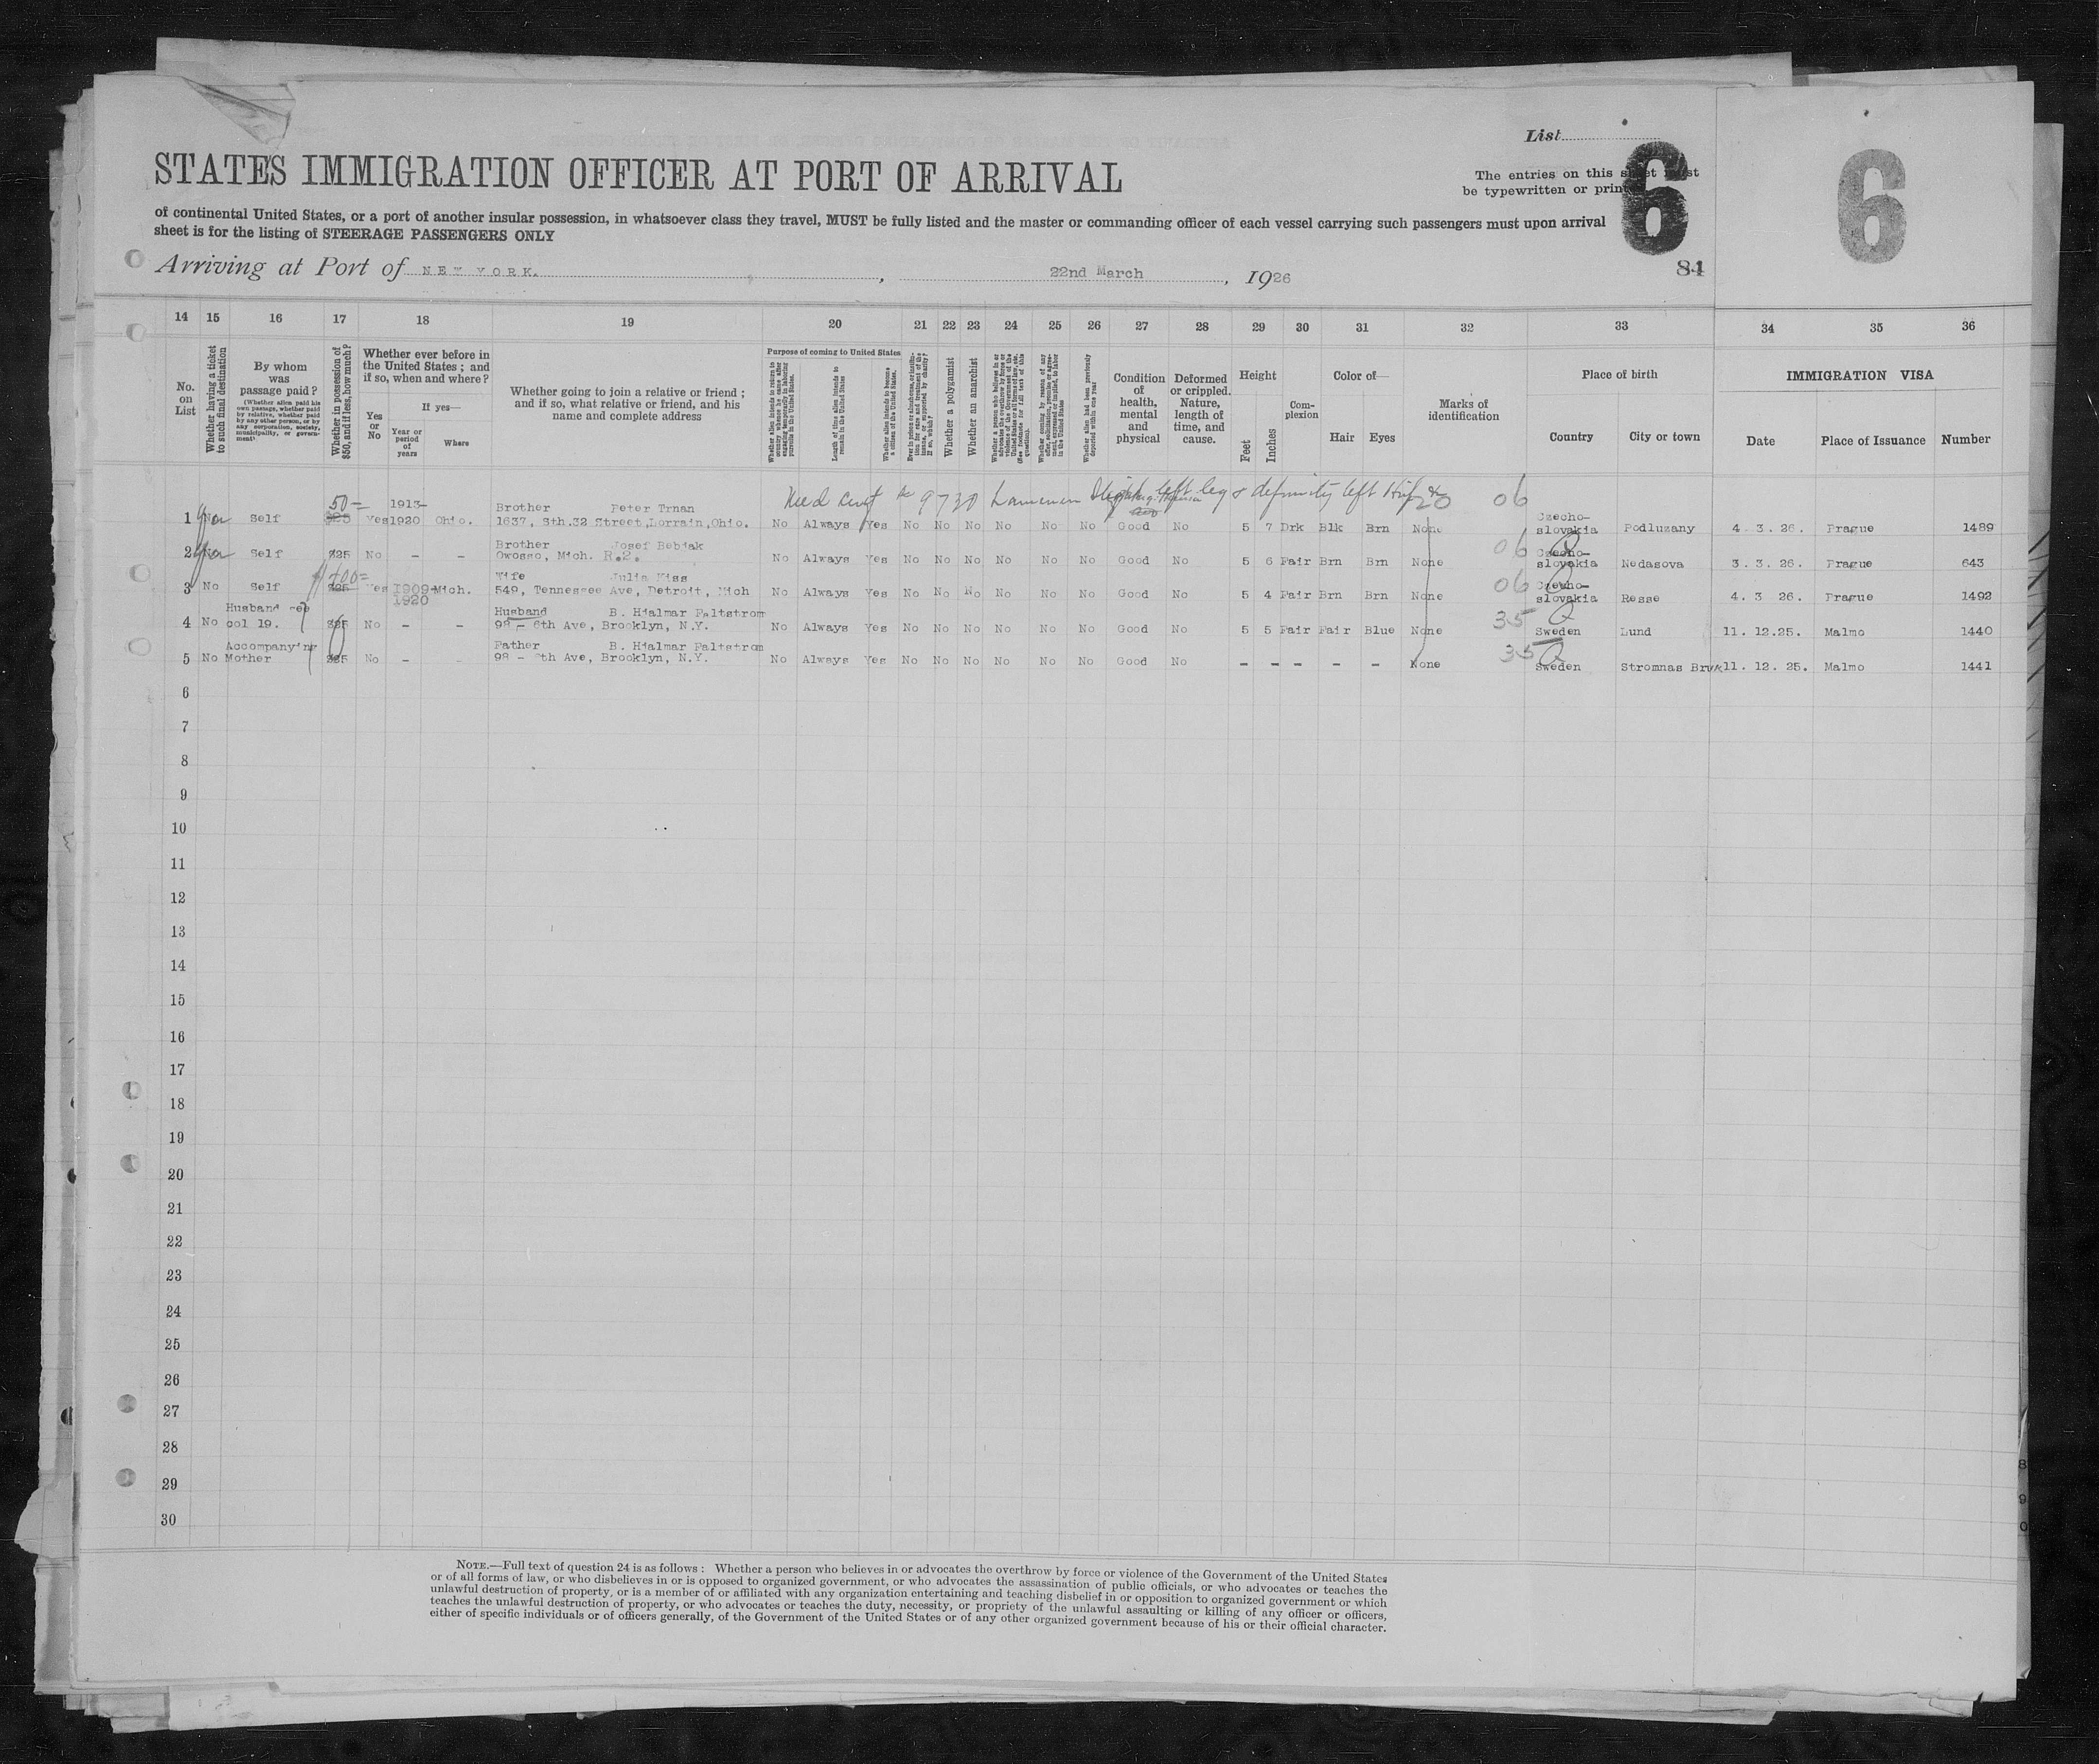 List
6
6
STATES IMMIGRATION OFFICER AT PORT OF ARRIVAL
The entries on this sheet must
be typewritten or printed
of continental United States, or a port of another insular possession, in whatsoever class they travel, MUST be fully listed and the master or commanding officer of each vessel carrying such passengers must upon arrival
sheet is for the listing of STEERAGE PASSENGERS ONLY
84
Arriving at Port of NEW YORK. , 22nd March , 1926
14 15 16 17 18 19 20 21 22 23 24 25 26 27 28 29 30 31 32 33 34 35 36
No. on List
Whether having a ticket to such final destination
By whom was passage paid?
(Whether alien paid his own passage, whether paid by relative, whether paid by any other person, or by any corporation, society, municipality, or government)
Whether in possession of $50, and if less, how much?
Whether ever before in the United States; and if so, when and where?
Yes or No
If yes—
Year or period of years
Where
Whether going to join a relative or friend; and if so, what relative or friend, and his name and complete address
Purpose of coming to United States
Whether alien intends to return to country whence he came after engaging temporarily in laboring pursuits in the United States.
Length of time alien intends to remain in the United States
Whether alien intends to become a citizen of the United States.
Whether a polygamist
Whether an anarchist
Whether alien had been previously deported within one year
Condition of health, mental and physical
Deformed or crippled. Nature, length of time, and cause.
Height
Feet
Inches
Complexion
Color of—
Hair
Eyes
Marks of identification
Place of birth
Country
City or town
IMMIGRATION VISA
Date
Place of Issuance
Number
Med cert # 9730 Lameness left leg & deformity left Hip
1 Self 50= Yes 1913-1920 Ohio. Brother Peter Trnan 1637, Sth.32 Street,Lorrain,Ohio. No Always Yes No No No No No No Good No 5 7 Drk Blk Brn None 06 Czecho-slovakia Podluzany 4.3.26. Prague 1489
2 Self $25 No – – Brother Josef Bebjak Owosso, Mich. R.2. No Always Yes No No No No No No Good No 5 6 Fair Brn Brn None 06 Q Czecho-slovakia Nedasova 3.3.26. Prague 643
3 No Self $25 Yes 1909-1920 Mich. Wife Julia Kiss 549, Tennessee Ave, Detroit, Mich No Always Yes No No No No No No Good No 5 4 Fair Brn Brn None 06 Q Czecho-slovakia Resse 4.3 26. Prague 1492
4 No Husband see col 19. $25 No – – Husband B. Hjalmar Paltstrom 98 – 6th Ave, Brooklyn, N.Y. No Always Yes No No No No No No Good No 5 5 Fair Fair Blue None 35 Q Sweden Lund 11. 12.25. Malmo 1440
5 No Accompanying Mother $25 No – – Father B. Hjalmar Paltstrom 98 – 6th Ave, Brooklyn, N.Y. No Always Yes No No No No No No Good No – – – – – None 35 Q Sweden Stromnas Bruk 11. 12. 25. Malmo 1441
6
7
8
9
10
11
12
13
14
15
16
17
18
19
20
21
22
23
24
25
26
27
28
29
30
NOTE.—Full text of question 24 is as follows: Whether a person who believes in or advocates the overthrow by force or violence of the Government of the United States
or of all forms of law, or who disbelieves in or is opposed to organized government, or who advocates the assassination of public officials, or who advocates or teaches the
unlawful destruction of property, or is a member of or affiliated with any organization entertaining and teaching disbelief in or opposition to organized government or which
teaches the unlawful destruction of property, or who advocates or teaches the duty, necessity, or propriety of the unlawful assaulting or killing of any officer or officers,
either of specific individuals or of officers generally, of the Government of the United States or of any other organized government because of his or their official character.